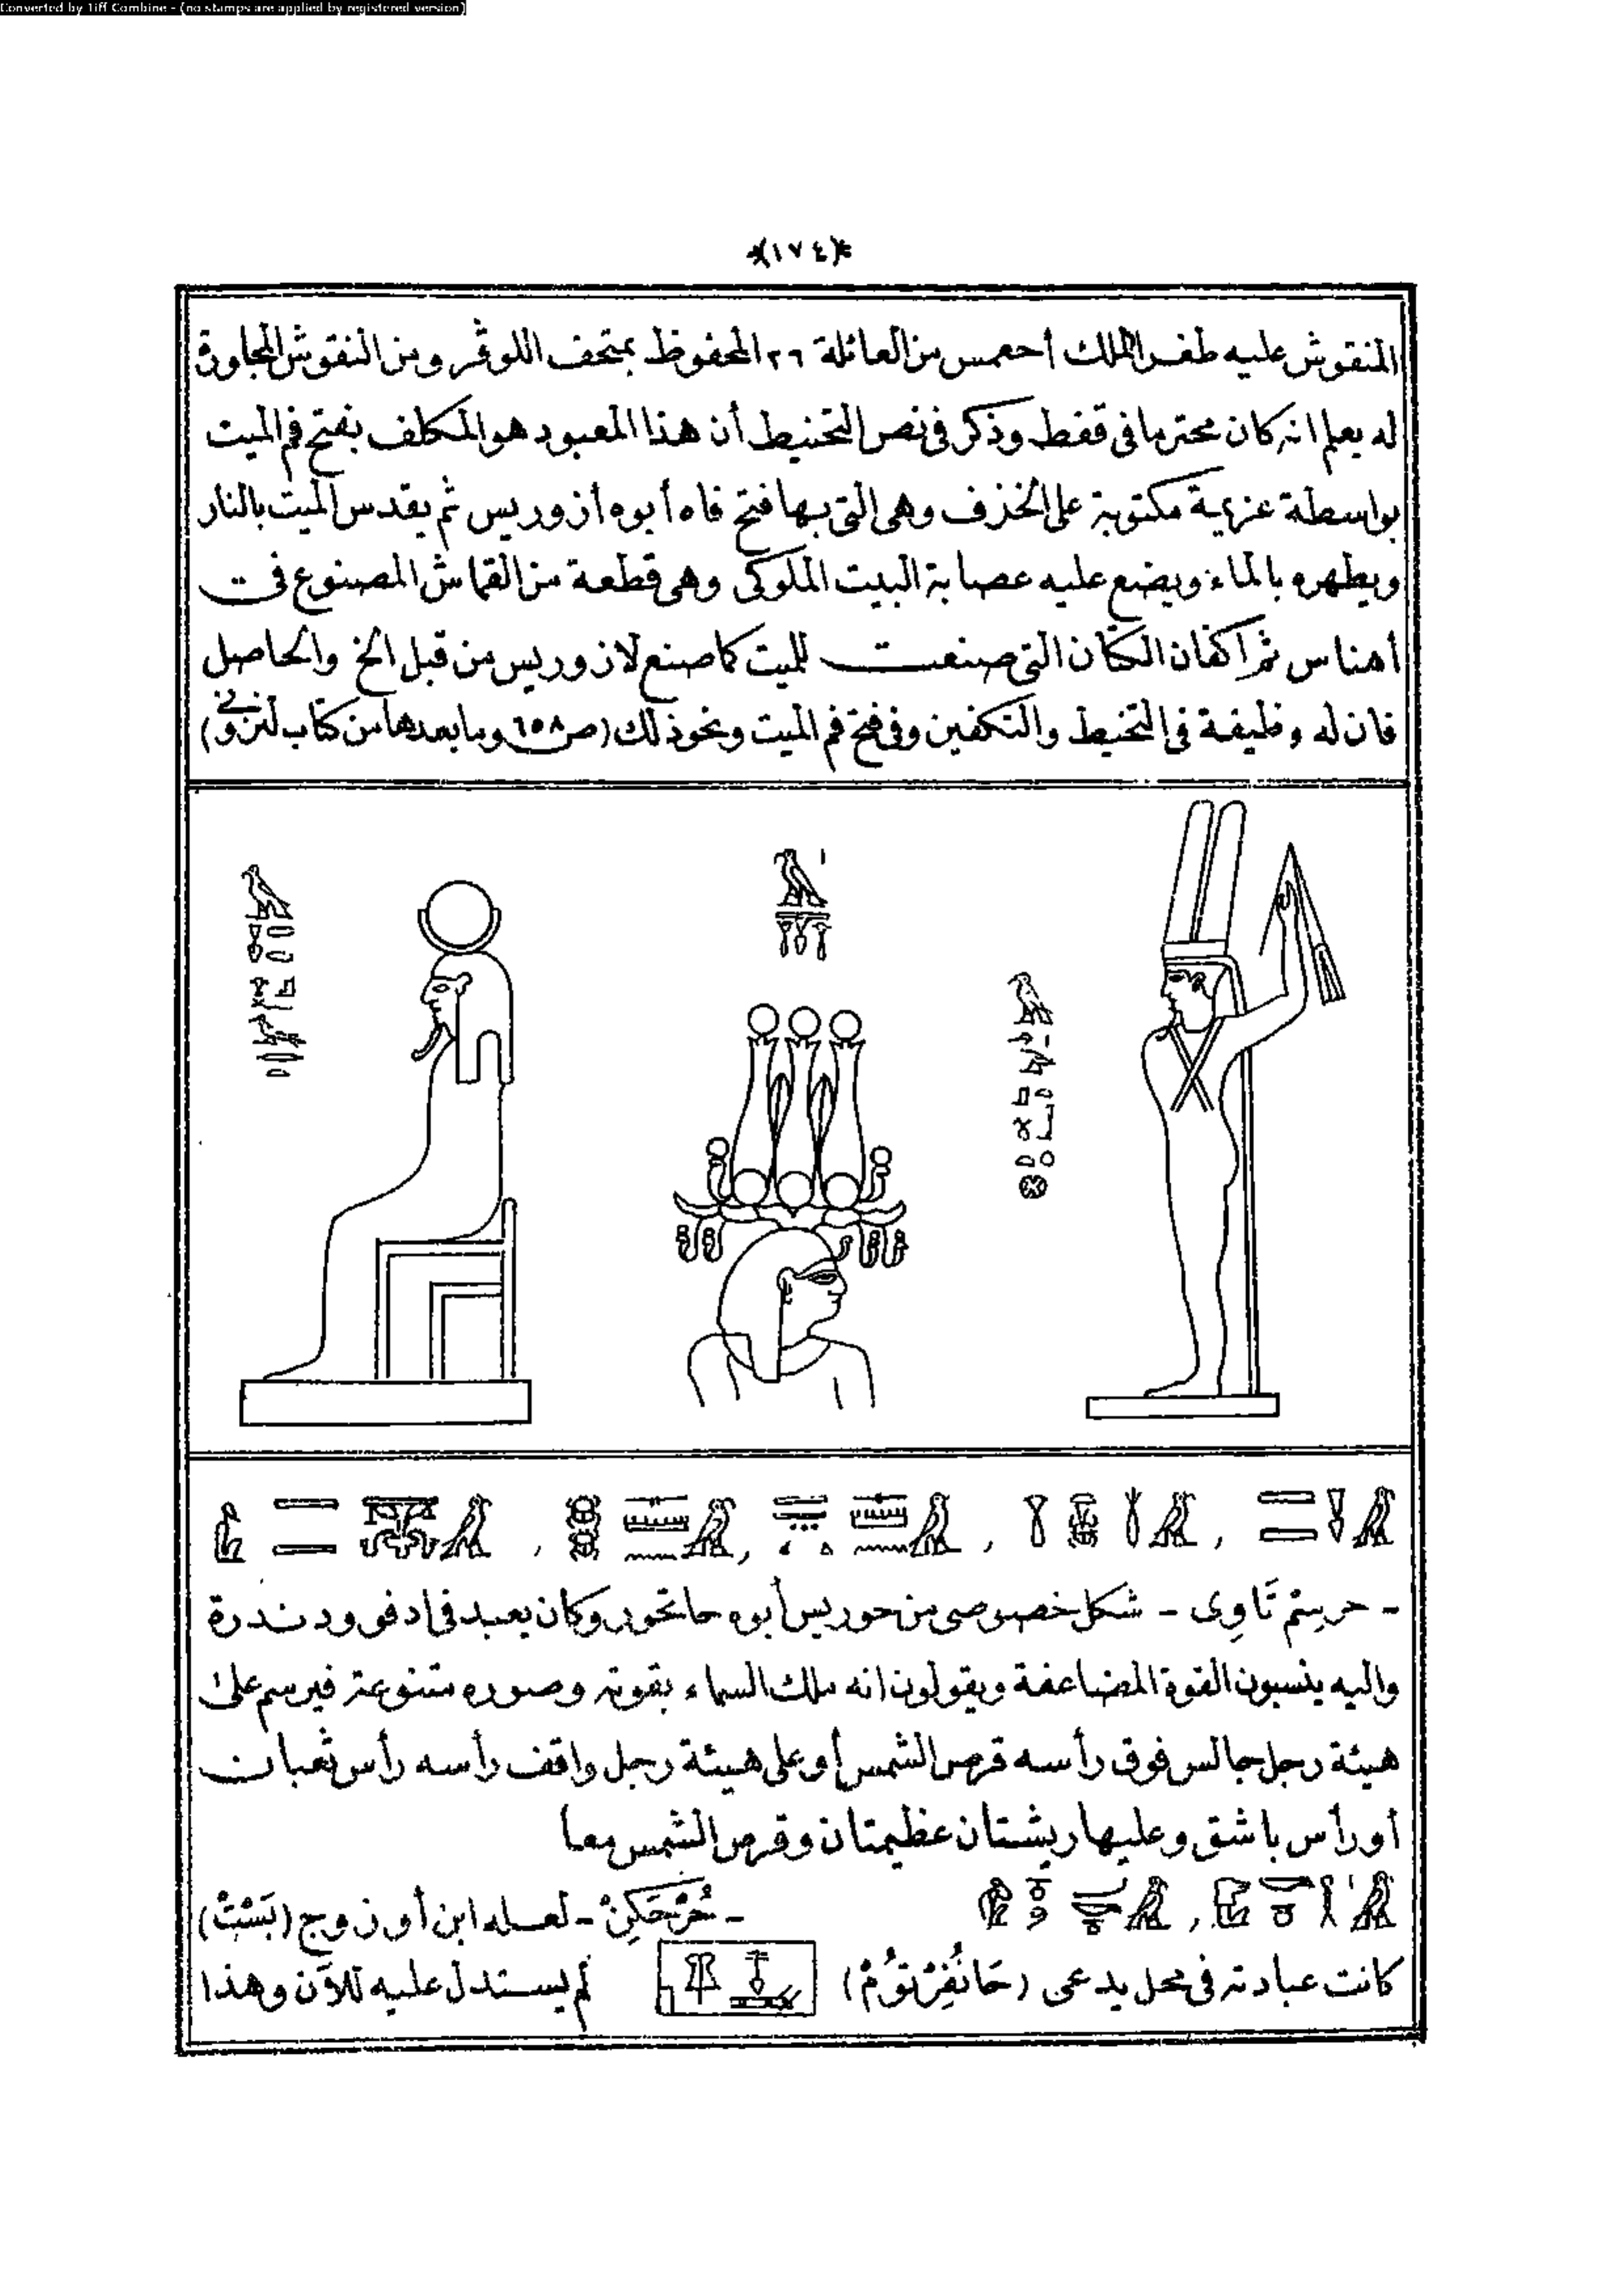 Converted by Tiff Combine - (no stamps are applied by registered version)
*(١٧٤)*
المنقوش عليه طغرا الملك أحعمس من العائلة ٢٦ المحفوظ بمتحف اللوڤر ومن النقوش المجاورة
له يعلم انه كان محترما فى قفط وذكر فى نص التحنيط أن هذا المعبود هو المكلف بفتح فم الميت
بواسطة عزيمة مكتوبة على الخذف وهى التى بها فتح فاه أبوه أزوريس ثم يقدس الميت بالنار
ويطهره بالماء ويضع عليه عصابة البيت الملوكى وهى قطعة من القماش المصنوع فى
أهناس ثم اكفان الكتان التى صنعت للميت كما صنع لازوريس من قبل الخ والحاصل
فان له وظيفة فى التحنيط والتكفين وفى فتح فم الميت ونحو ذلك (ص ٦٥٨ وما بعدها من كتاب لنزونى)
- حرسِتم تَاوِى - شكل خصوصى من حوريس أبوه حاتحور وكان يعبد فى ادفو ودندرة
واليه ينسبون القوة المضاعفة ويقولون انه ملك السماء بقوته وصوره متنوعة فيرسم على
هيئة رجل جالس فوق رأسه قرص الشمس أو على هيئة رجل واقف رأسه رأس ثعبان
أو رأس باشق وعليها ريشتان عظيمتان وقرص الشمس معا
- حُرْحَكِنْ - لعله ابن أو زوج (بَسْتْ)
كانت عبادته فى محل يدعى (حَانُفِرْتُومْ) لم يستدل عليه للآن وهذا